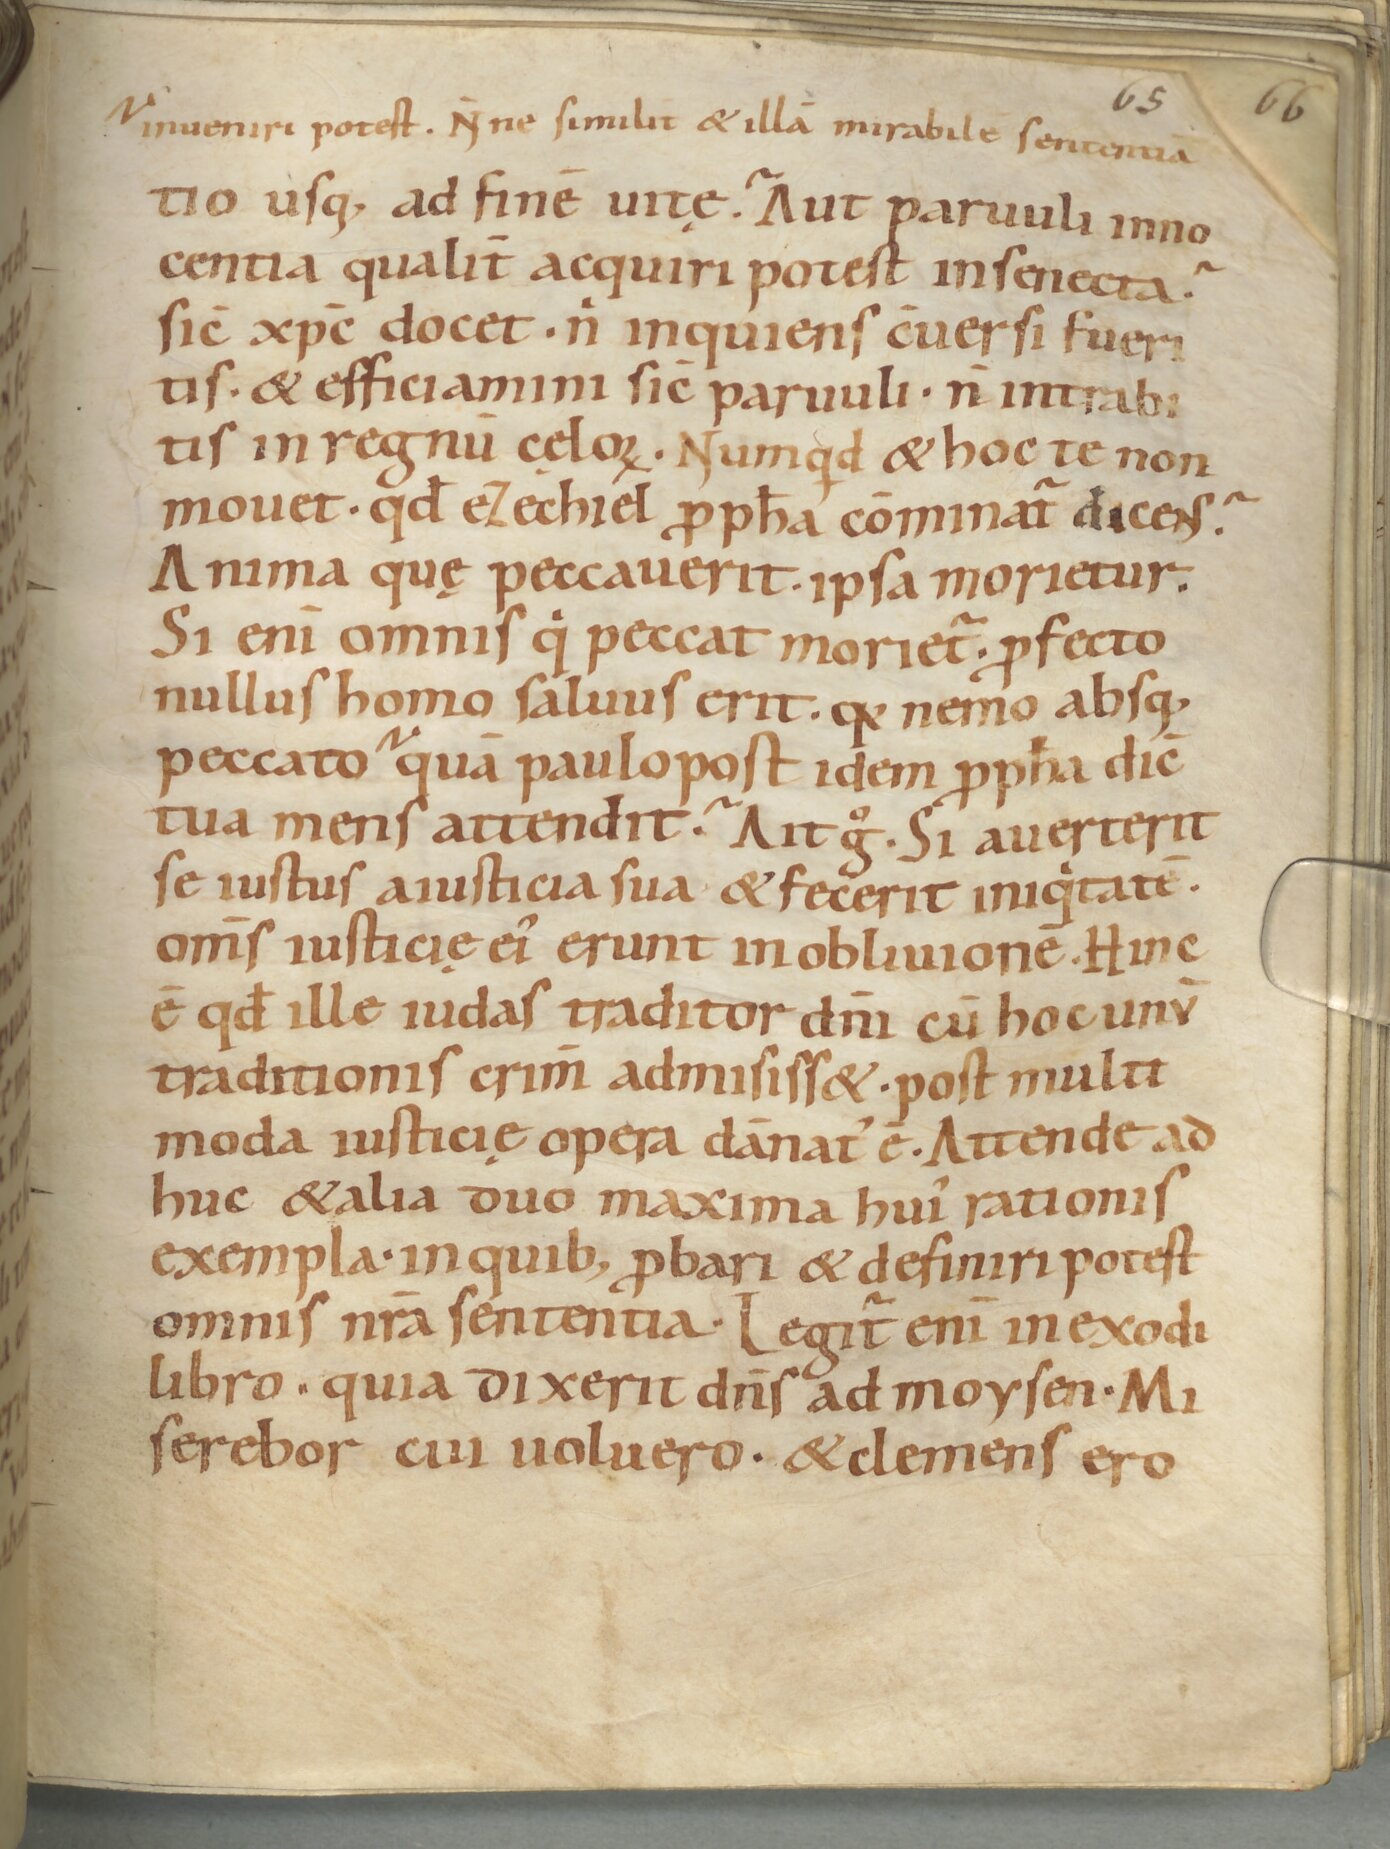 65 66
inueniri potest. N̄ ne similit̄ & illā mirabilē sententiā
tio usq, ad finē uitę. Aut paruuli inno
centia qualit̄ acquiri potest in senecta.
sic̄ xpc̄ docet. n̄ inquiens c̄uersi fueri
tis. & efficiamini sic̄ paruuli. n̄ intrabi
tis in regnū cęloꝝ. Numqd & hoc te non
mouet. qđ eZechiel ꝓpħa cōminat̄ dicens.
Anima quę peccauerit. ipsa morietur.
Si enī omnis q̇ peccat moriet̄. ꝓfecto
nullus homo saluus erit. qꝛ nemo absq,
peccato quā paulo post idem ꝓpħa dic̄
tua mens attendit. Ait g̊. Si auerterit
se iustus a iusticia sua & fecerit iniqtatē.
om̄s iusticię ei᾽ erunt in obliuionē. Hinc
ē qđ ille iudas traditor dn̄i cū hoc unū
traditionis crim̄ admisiss&. post multi
moda iusticię opera dānat᾽ ē. Attende ad
huc & alia duo maxima hui᾽ rationis
exempla. in quib, ꝓbari & definiri potest
omnis nr̄a sententia. Legit̄ enī in exodi
libro. quia dixerit dn̄s ad moysen. Mi
serebor cui uoluero. & clemens ero